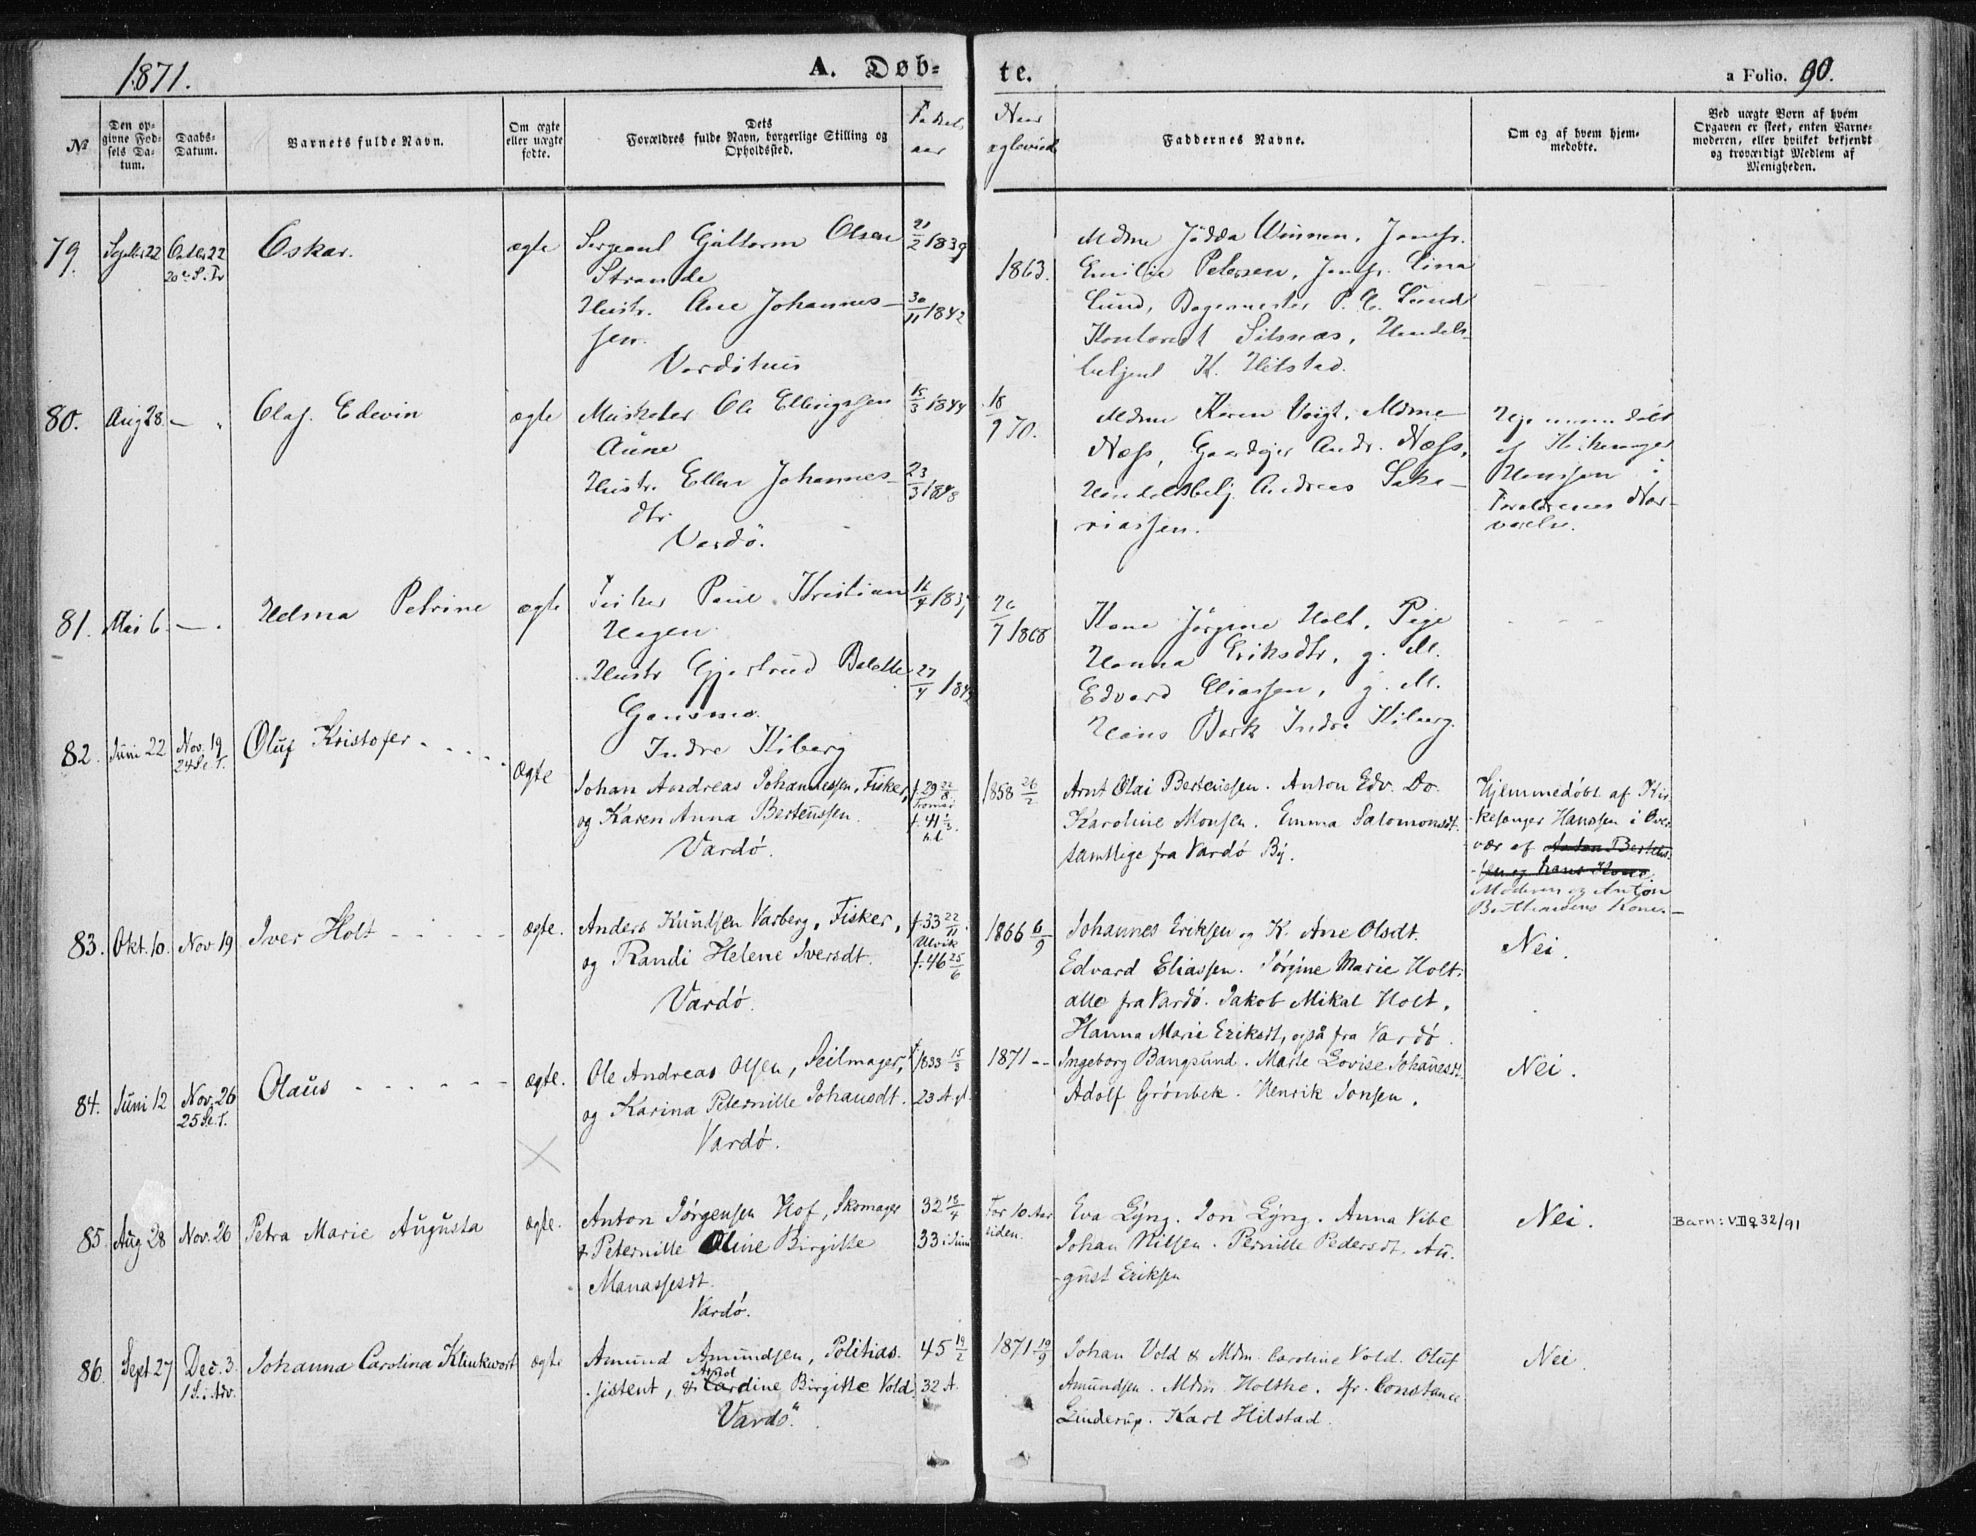 1871.
A. Døb-
te.
a Folio. 90.
№
Den op-
givne Fød-
sels Da-
tum.
Daabs-
Datum.
Barnets fulde Navn.
Om ægte
eller uægte
fødte.
Dets
Forældres fulde Navn, borgerlige Stilling og
Opholdssted.
Fødsels
aar
Naar
ægteviet
Faddernes Navne.
Om og af hvem hjem-
medøbte.
Ved uægte Børn af hvem
Opgaven er skeet, enten Barne-
moderen, eller hvilket bekjendt
og troværdigt Medlem af
Menigheden.
79.
Septbr 22
Octbr 22
20de S. Tr
Oskar.
ægte
Sergeant Guttorm Olsen
Strande
Hustr. Ane Johannes-
sen.
Vardöhus
21/2 1839
30/11 1842
1863.
Mdme Jödda Winnem, Jomfr.
Emilie Petersen, Jomfr. Lina
Lund, Bagermester P. C. Lund
Kontorist Silsnæs, Handels-
betjent K. Hilstad.
80.
Aug 28
Olaf Edevin
ægte
Musketer Ole Ellingssen
Aune
Hustr. Ellen Johannes-
dtr
Vardö.
15/3 1844
23/3 1848
18/9 70.
Mdme Karen Voigt, Mdme
Næss, Gaardejer Andr. Næss,
Handelsbetj. Andreas Saka-
riassen.
Hjemmedöbt
af Kirkesanger
Hanssen i
Forældrenes Nær-
værelse.
81.
Mai 6
Helma Petrine
ægte
Fisker Paul Kristian
Hagen
Hustr Gjertrud Bolette
Gansmo.
Indre Kiberg
16/4 1837
27/4 1842
26/7 1868
Kone Jørgine Holt, Pige
Hanna Eriksdtr, g. M.
Edvard Eliassen, g. M.
Hans Bark Indre Kiberg.
82.
Juni 22
Nov. 19
24 S. e. T.
Oluf Kristofer
Ægte
Johan Andreas Johannessen, Fisker,
og Karen Anna Berteussen.
Vardö.
f. 29 22/8
Tromsø
f. 41 1/3.
1858 26/2
Arnt Olai Berteussen. Anton Edv. Do.
Karoline Monsen. Emma Salomonsdt.
samtlige fra Vardö By.
Hjemmedöbt af Kir-
kesanger Hanssen i Over-
vær af Anton Berteus-
sen og hans Kone.
Moderen og Anton
Berthausens Kone.
83.
Okt. 10.
Nov 19
Iver Holt
ægte.
Anders Knudsen Varberg, Fisker,
og Randi Helene Iversdt.
Vardö.
f. 33 22/11
Ulvik
f. 46 25/6
1866 6/9
Johannes Eriksen og K. Ane Olsdt.
Edvard Eliassen. Jörgine Marie Holt.
alle fra Vardö. Jakob Mikal Holt.
Hanna Marie Eriksdt, også fra Vardö.
Nei.
84.
Juni 12
Nov. 26
25 S. e. T.
Olaus
ægte.
Ole Andreas Olsen, Seilmager,
og Karina Peternille Johansdt.
Vardö.
f 1833 15/3
23 A gl.
1871
Ingeborg Bangsund. Marte Lovise Johanesdt.
Adolf Grönbek. Henrik Jonsen.
Nei.
85.
Aug 28
Nov. 26
Petra Marie Augusta
ægte.
Anton Jörgensen Hof, Skomager
& Peternille Oline Birgitte
Manassesdt.
Vardö.
32 18/4
33 i Juni
For 10 Aar
siden.
Eva Lyng. Jon Lyng. Anna Vibe
Johan Nilsen. Pernille Pedersdt. Au-
gust Eriksen
Nei.
Barn: VII 9 32/91
86.
Sept 27
Dec. 3.
1 S. i Adv.
Johanna Carolina Klinkwort
ægte
Amund Amundsen, Politias-
sistent, & Cardine Birgitte Vold.
Vardö.
45 19/2
32 A.
1871 19/9
Johan Vold & Mdm. Caroline Vold. Oluf
Amundsen. Mdm. Holthe. Jfr. Constance
Linderup. Karl Hilstad.
Nei.